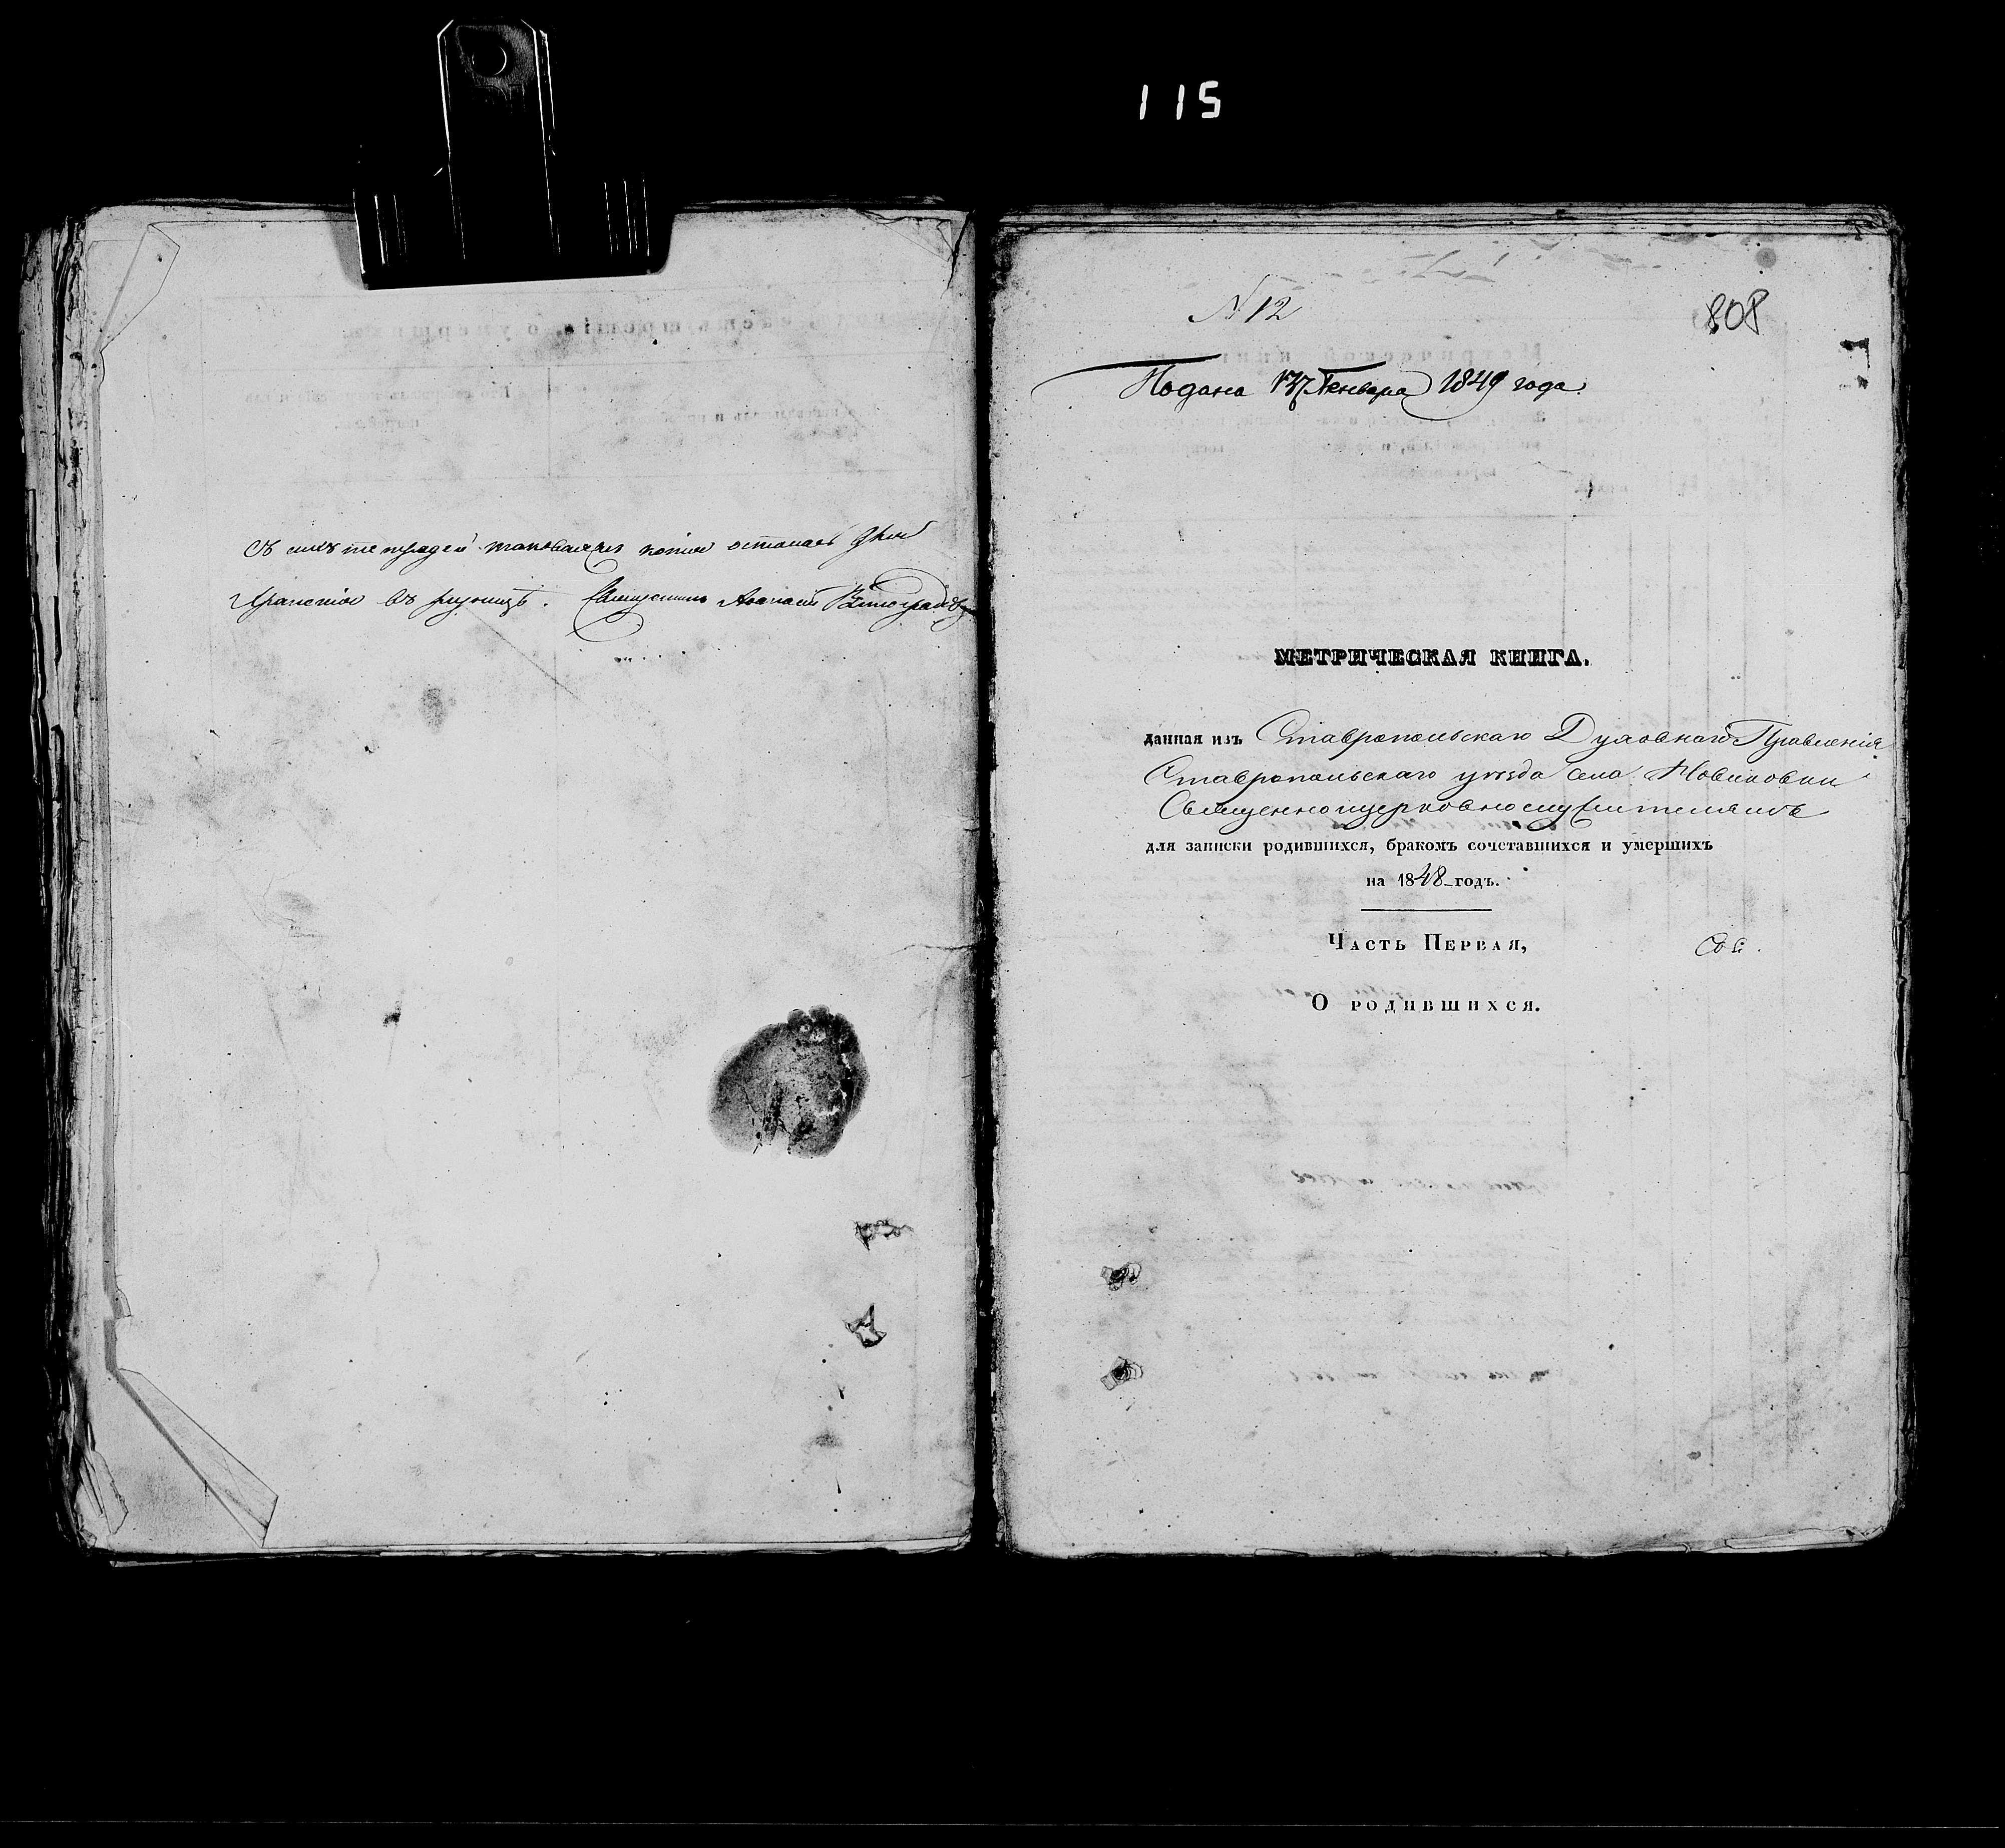 115
Съ сихъ тетрадей таковаяже копія осталась для
храненія въ ризницѣ. Священникъ Аѳанасій Виноградовъ
N 12
808
Подана Генваря 1849 года.
МЕТРИЧЕСКАЯ КНИГА.
данная изъ Ставропольскаго Духовнаго Правленія
Ставропольскаго уѣзда села Новиковки
Священноцерковнослужителямъ
для записки родившихся, бракомъ сочетавшихся и умершихъ
на 1848 годъ.
Часть Первая,
О родившихся.